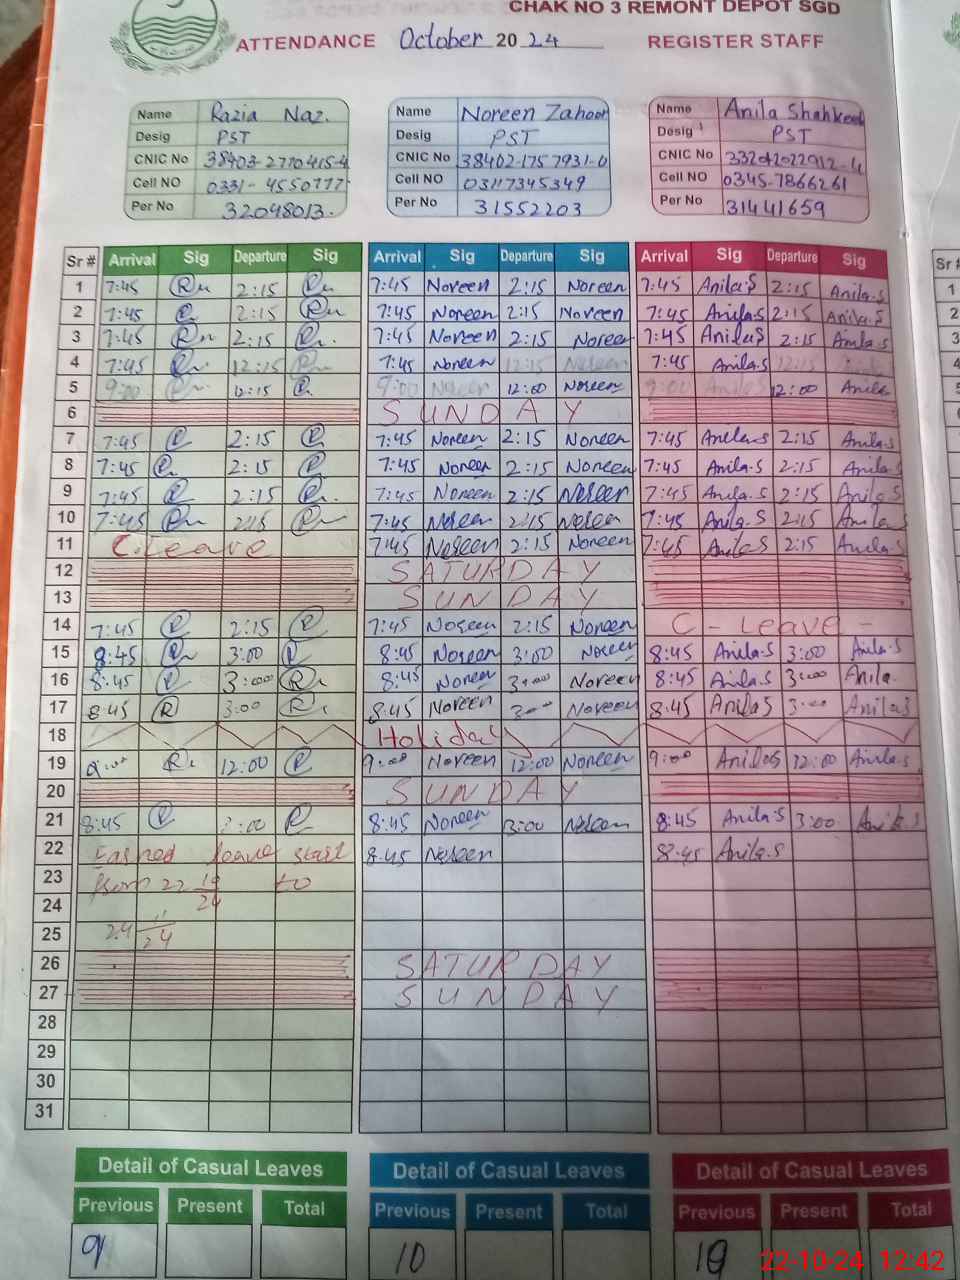 CHAK NO 3 REMONT DEPOT SGD
ATTENDANCE October 2024 REGISTER STAFF
Name Razia Naz. Name Noreen Zahoor Name Anila Shahkeel
Desig PST Desig PST Desig PST
CNIC No 38403-2770415-4 CNIC No 38402-1757931-0 CNIC No
Cell NO 0331-4550777 Cell NO 03117345349 Cell NO 0345-7866261
Per No 32048013. Per No 31552203 Per No 31441659
Sr # Arrival Sig Departure Sig Arrival Sig Departure Sig Arrival Sig Departure Sig Sr #
1 7:45 2:15 7:45 Noreen 2:15 Noreen 7:45 Anila.S 2:15 Anila.S 1
2 7:45 2:15 7:45 Noreen 2:15 Noreen 7:45 Anila.S 2:15 Anila.S 2
3 7:45 2:15 7:45 Noreen 2:15 Noreen 7:45 Anila.S 2:15 Anila.S 3
4 7:45 12:15 7:45 Noreen 12:15 Noreen 7:45 Anila.S 12:15 4
5 9:00 9:00 Noreen 12:00 Noreen 9:00 Anila.S 12:00 Anila 5
6 SUNDAY
7 7:45 2:15 7:45 Noreen 2:15 Noreen 7:45 Anila.S 2:15 Anila.S
8 7:45 2:15 7:45 Noreen 2:15 Noreen 7:45 Anila.S 2:15 Anila.S
9 7:45 2:15 7:45 Noreen 2:15 Noreen 7:45 Anila.S 2:15 Anila.S
10 7:45 2:15 7:45 Noreen 2:15 Noreen 7:45 Anila.S 2:15 Anila.S
11 C.Leave 7:45 Noreen 2:15 Noreen 7:45 Anila.S 2:15 Anila.S
12 SATURDAY
13 SUNDAY
14 7:45 2:15 7:45 Noreen 2:15 Noreen C - Leave -
15 8:45 3:00 8:45 Noreen 3:00 Noreen 8:45 Anila.S 3:00 Anila.S
16 8:45 3:00 8:45 Noreen 3:00 Noreen 8:45 Anila.S 3:00 Anila.
17 8:45 3:00 8:45 Noreen 3:00 Noreen 8:45 Anila S 3:00 Anila S
18 Holiday
19 9:00 12:00 9:00 Noreen 12:00 Noreen 9:00 Anila S 12:00 Anila.S
20 SUNDAY
21 8:45 3:00 8:45 Noreen 3:00 Noreen 8:45 Anila.S 3:00 Anila.S
22 Earned leave start 8:45 Noreen 8:45 Anila.S
23 from 22 to
24
25 24 11/24
26 SATURDAY
27 SUNDAY
28
29
30
31
Detail of Casual Leaves Detail of Casual Leaves Detail of Casual Leaves
Previous Present Total Previous Present Total Previous Present Total
9 10
22-10-24 12:42